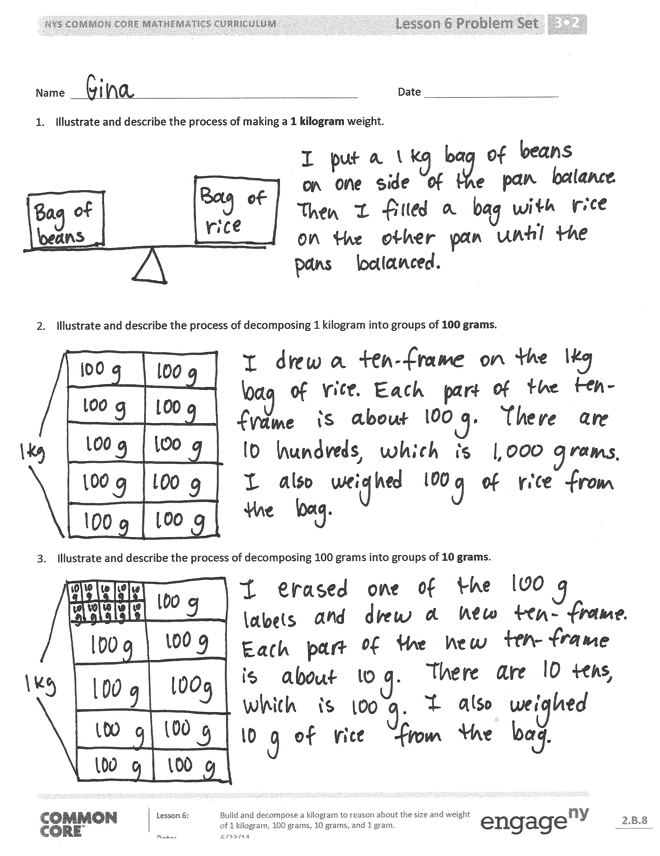 NYS COMMON CORE MATHEMATICS CURRICULUM
Lesson 6 Problem Set 3•2
Name Gina
Date
1. Illustrate and describe the process of making a 1 kilogram weight.
Bag of
beans
Bag of
rice
I put a 1 kg bag of beans
on one side of the pan balance.
Then I filled a bag with rice
on the other pan until the
pans balanced.
2. Illustrate and describe the process of decomposing 1 kilogram into groups of 100 grams.
1kg
100 g 100 g
100 g 100 g
100 g 100 g
100 g 100 g
100 g 100 g
I drew a ten-frame on the 1kg
bag of rice. Each part of the ten-
frame is about 100 g. There are
10 hundreds, which is 1,000 grams.
I also weighed 100 g of rice from
the bag.
3. Illustrate and describe the process of decomposing 100 grams into groups of 10 grams.
1 kg
10 g 10 g 10 g 10 g 10 g
10 g 10 g 10 g 10 g 10 g
100 g
100 g 100 g
100 g 100g
100 g 100 g
100 g 100 g
I erased one of the 100 g
labels and drew a new ten-frame.
Each part of the new ten-frame
is about 10 g. There are 10 tens,
which is 100 g. I also weighed
10 g of rice from the bag.
COMMON
CORE
Lesson 6:
Build and decompose a kilogram to reason about the size and weight
of 1 kilogram, 100 grams, 10 grams, and 1 gram.
engageny
2.B.8